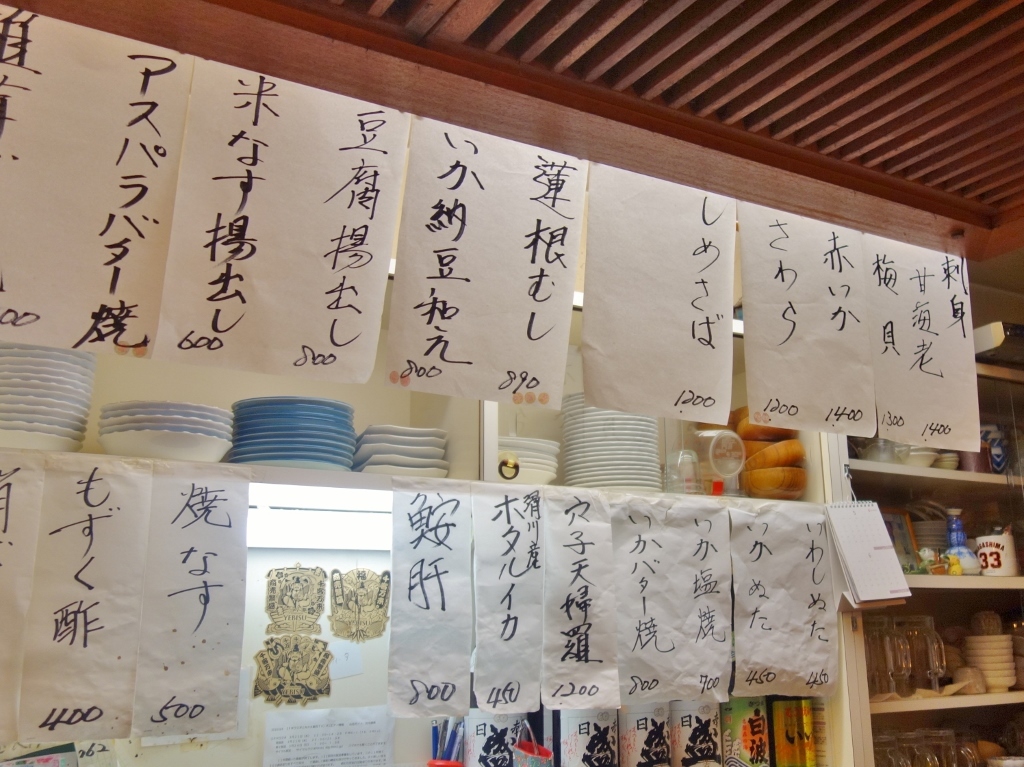 刺身
甘海老
1400
梅貝
1300
赤いか
1400
さわら
1200
しめさば
1200
蓮根むし
890
いか納豆和え
800
豆腐揚出し
800
米なす揚出し
600
アスパラバター焼
いわしぬた
450
いかぬた
450
いか塩焼
700
いかバター焼
800
穴子天婦羅
1200
滑川産
ホタルイカ
450
鮟肝
800
焼なす
500
もずく酢
400
YEBISU
YEBISU
YEBISU
33
白波
062